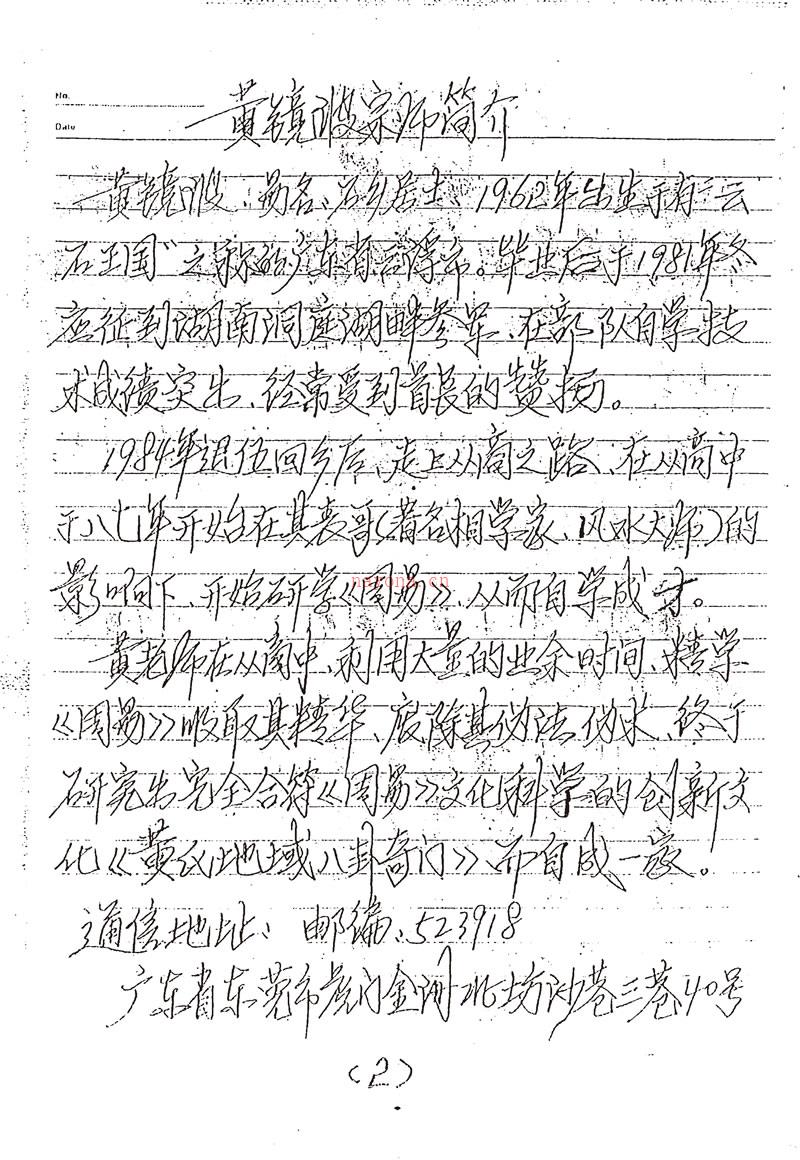 No.
Date
黄镜波宗师简介
黄镜波、易名、石乡居士、1962年出生于有“云
石王国”之称的广东省云浮市。毕业后于1981年冬
应征到湖南洞庭湖畔参军、在部队自学技
术成绩突出、经常受到首长的赞扬。
1984年退伍回乡后、走上从商之路、在从商中
于八七年开始在其表哥(著名相学家、风水大师)的
影响下、开始研学《周易》、从而自学成才。
黄老师在从商中、利用大量的业余时间、精学
《周易》吸取其精华、废除其伪法伪术、终于
研究出完全合符《周易》文化科学的创新文
化《黄氏地域八卦奇门》、而自成一家。
通信地址: 邮编:523918
广东省东莞市虎门金洲北坊沙巷三巷40号
(2)
nayona.cn